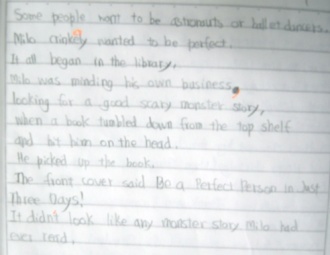 Some people want to be astronauts or ballet dancers.
Milo crinkley wanted to be perfect.
It all began in the library,
Milo was minding his own business,
looking for a good scary monster story,
when a book tumbled down from the top shelf
and hit him on the head.
He picked up the book.
The front cover said Be a Perfect Person in Just
Three Days!
It didn't look like any monster story Milo had
ever read.